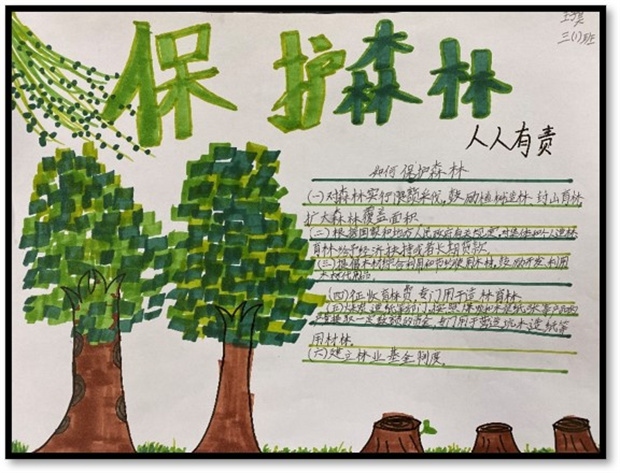 三(1)班
保护森林
人人有责
如何保护森林
(一)对森林实行限额采伐,鼓励植树造林 封山育林
扩大森林覆盖面积
(二)根据国家和地方人民政府有关规定,对集体和个人造林
育林给予经济扶持或者长期贷款
(三)提倡木材综合利用和节约使用木材,鼓励开发、利用
木材代用品
(四)征收育林费,专门用于造林育林
用材林。
(六)建立林业基金制度。